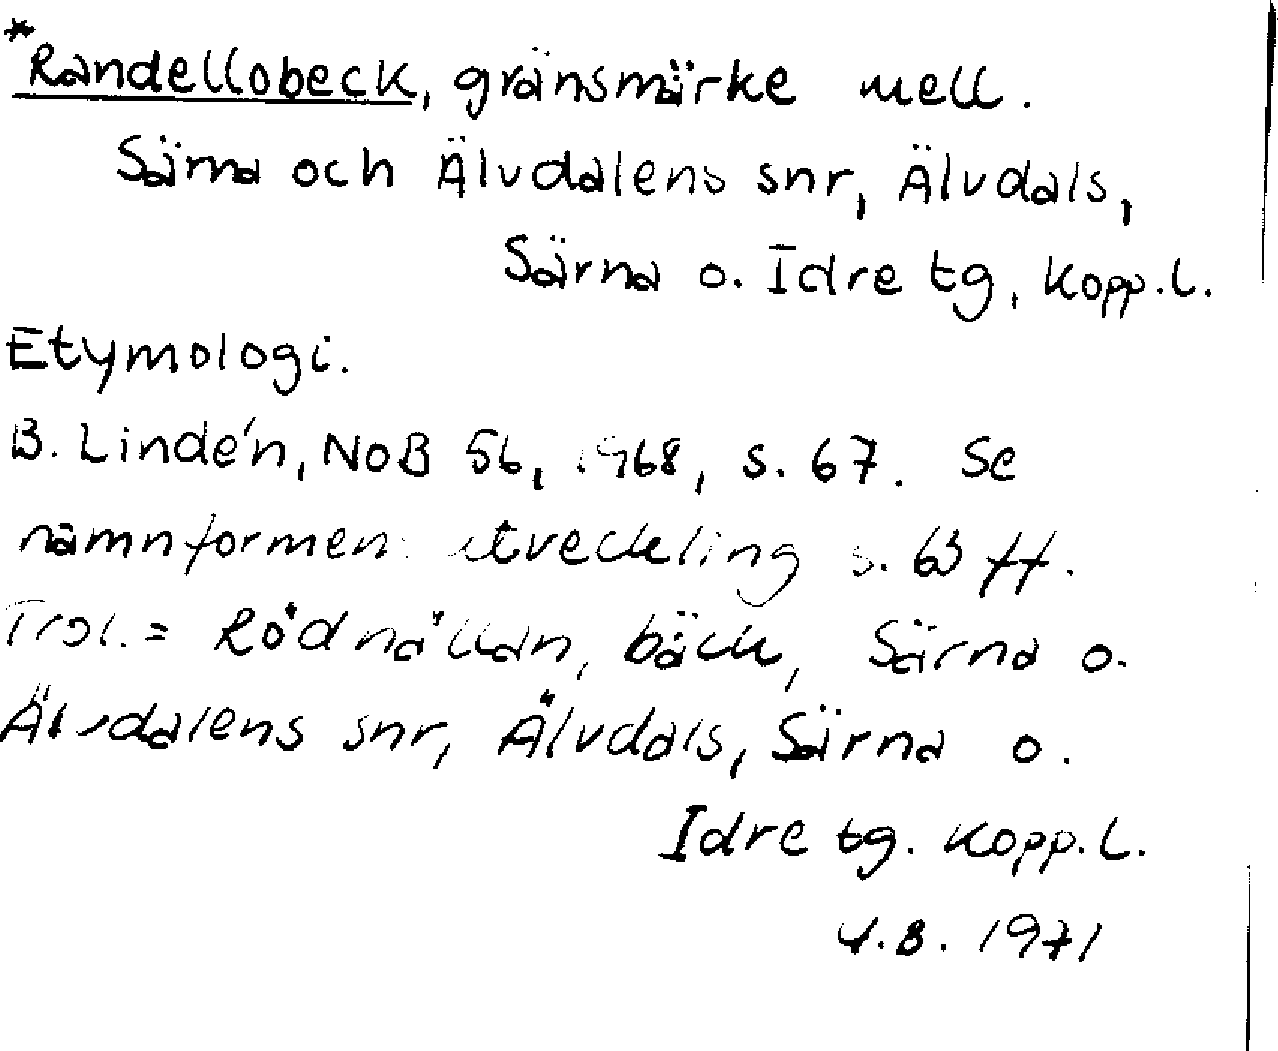 *Randellobeck, gränsmärke mell.
Särna och Älvdalens snr, Älvdals,
Särna o. Idre tg, Kopp.l.
Etymologi.
B. Lindén, NoB 56, 1968, s. 67. Se
namnformens utveckling s. 63 ff.
Trol. = Rödnällan, bäck, Särna o.
Älvdalens snr, Älvdals, Särna o.
Idre tg. Kopp.l.
1971